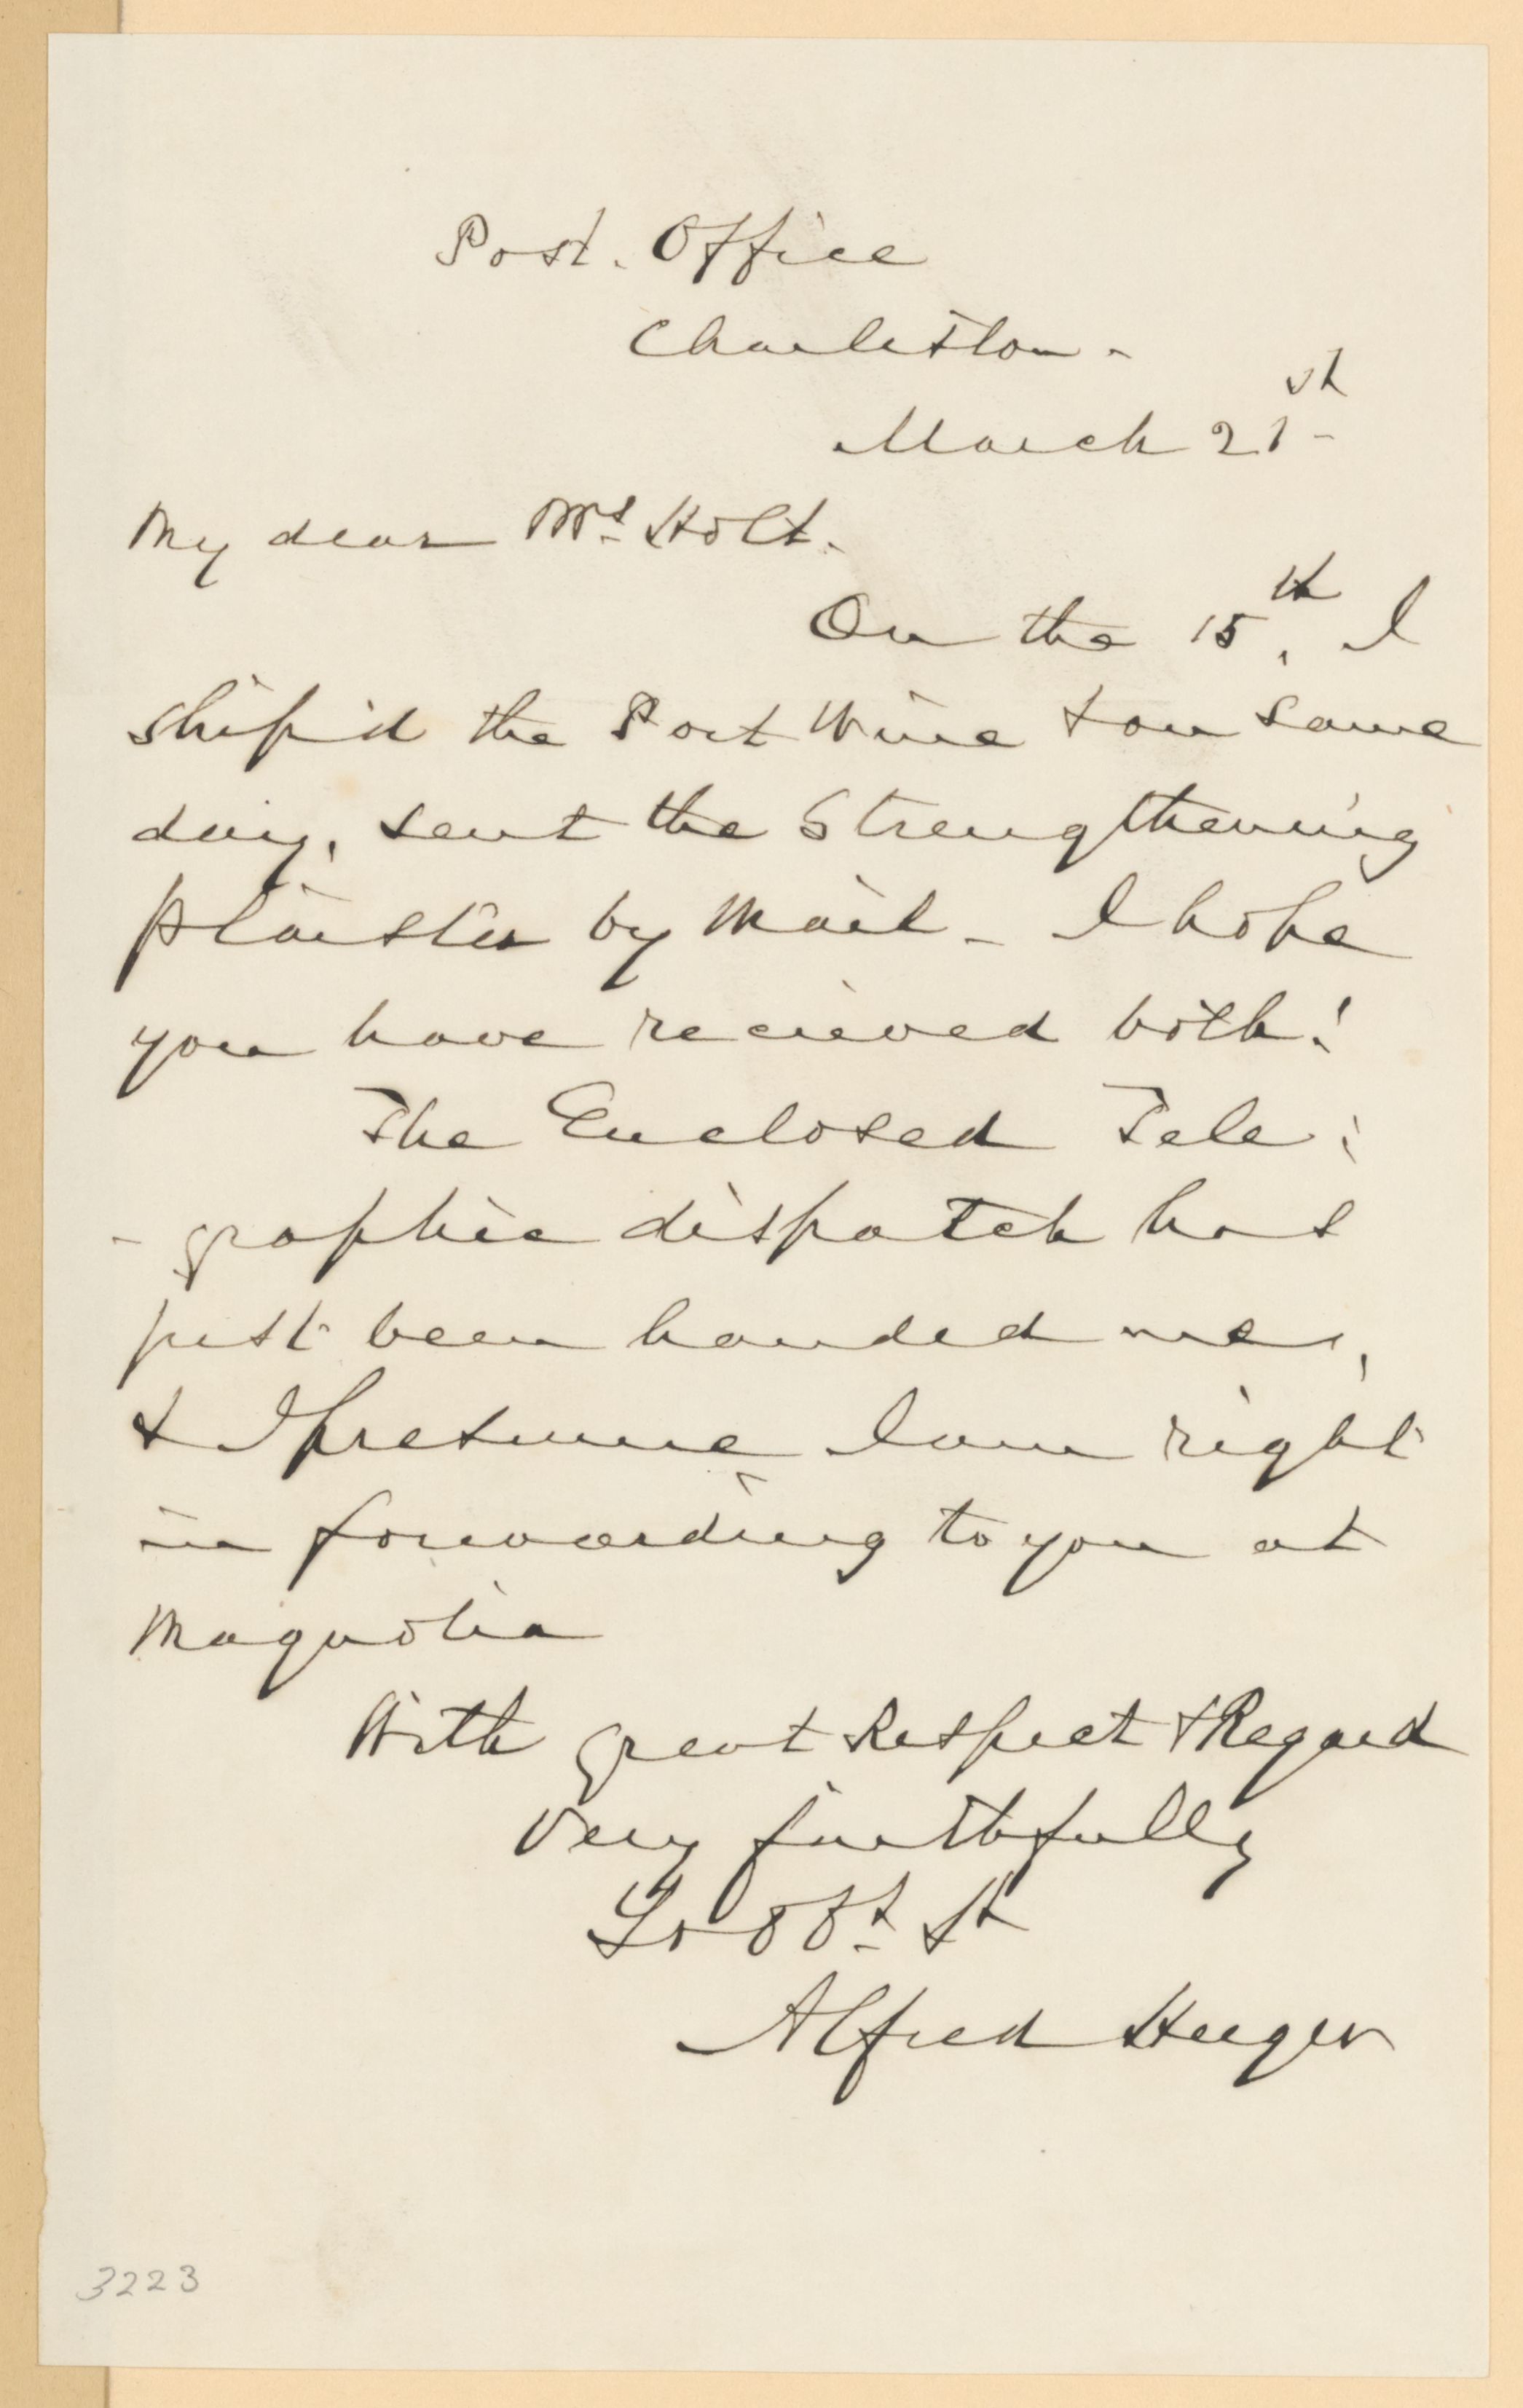 Post. Office
Charleston -
March 21st -
My dear Mrs Holt.
On the 15th, I
ship'd the Port Wine & on same
day, sent the Strengthening
plaister by Mail - I hope
you have recieved both!
The Enclosed Tele:
- graphic dispatch has
just been handed me,
& I presume I am right
in forwarding to you at
Magnolia
With great Respect & Regard
Very faithfully
Yr obt St
Alfred Huger
3223